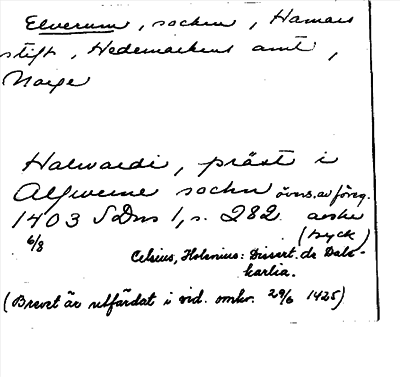 Elverum, socken, Hamars
stift, Hedemarkens amt,
Norge
Halwardi, präst i
Alfwerne sochn övns. av föreg.
1403 SDns 1, s. 282. avskr
6/8 (tryck)
Celsius, Holenius: Dissert. de Dale-
karlia.
(Brevet är utfärdat i vid. omkr. 29/6 1425)